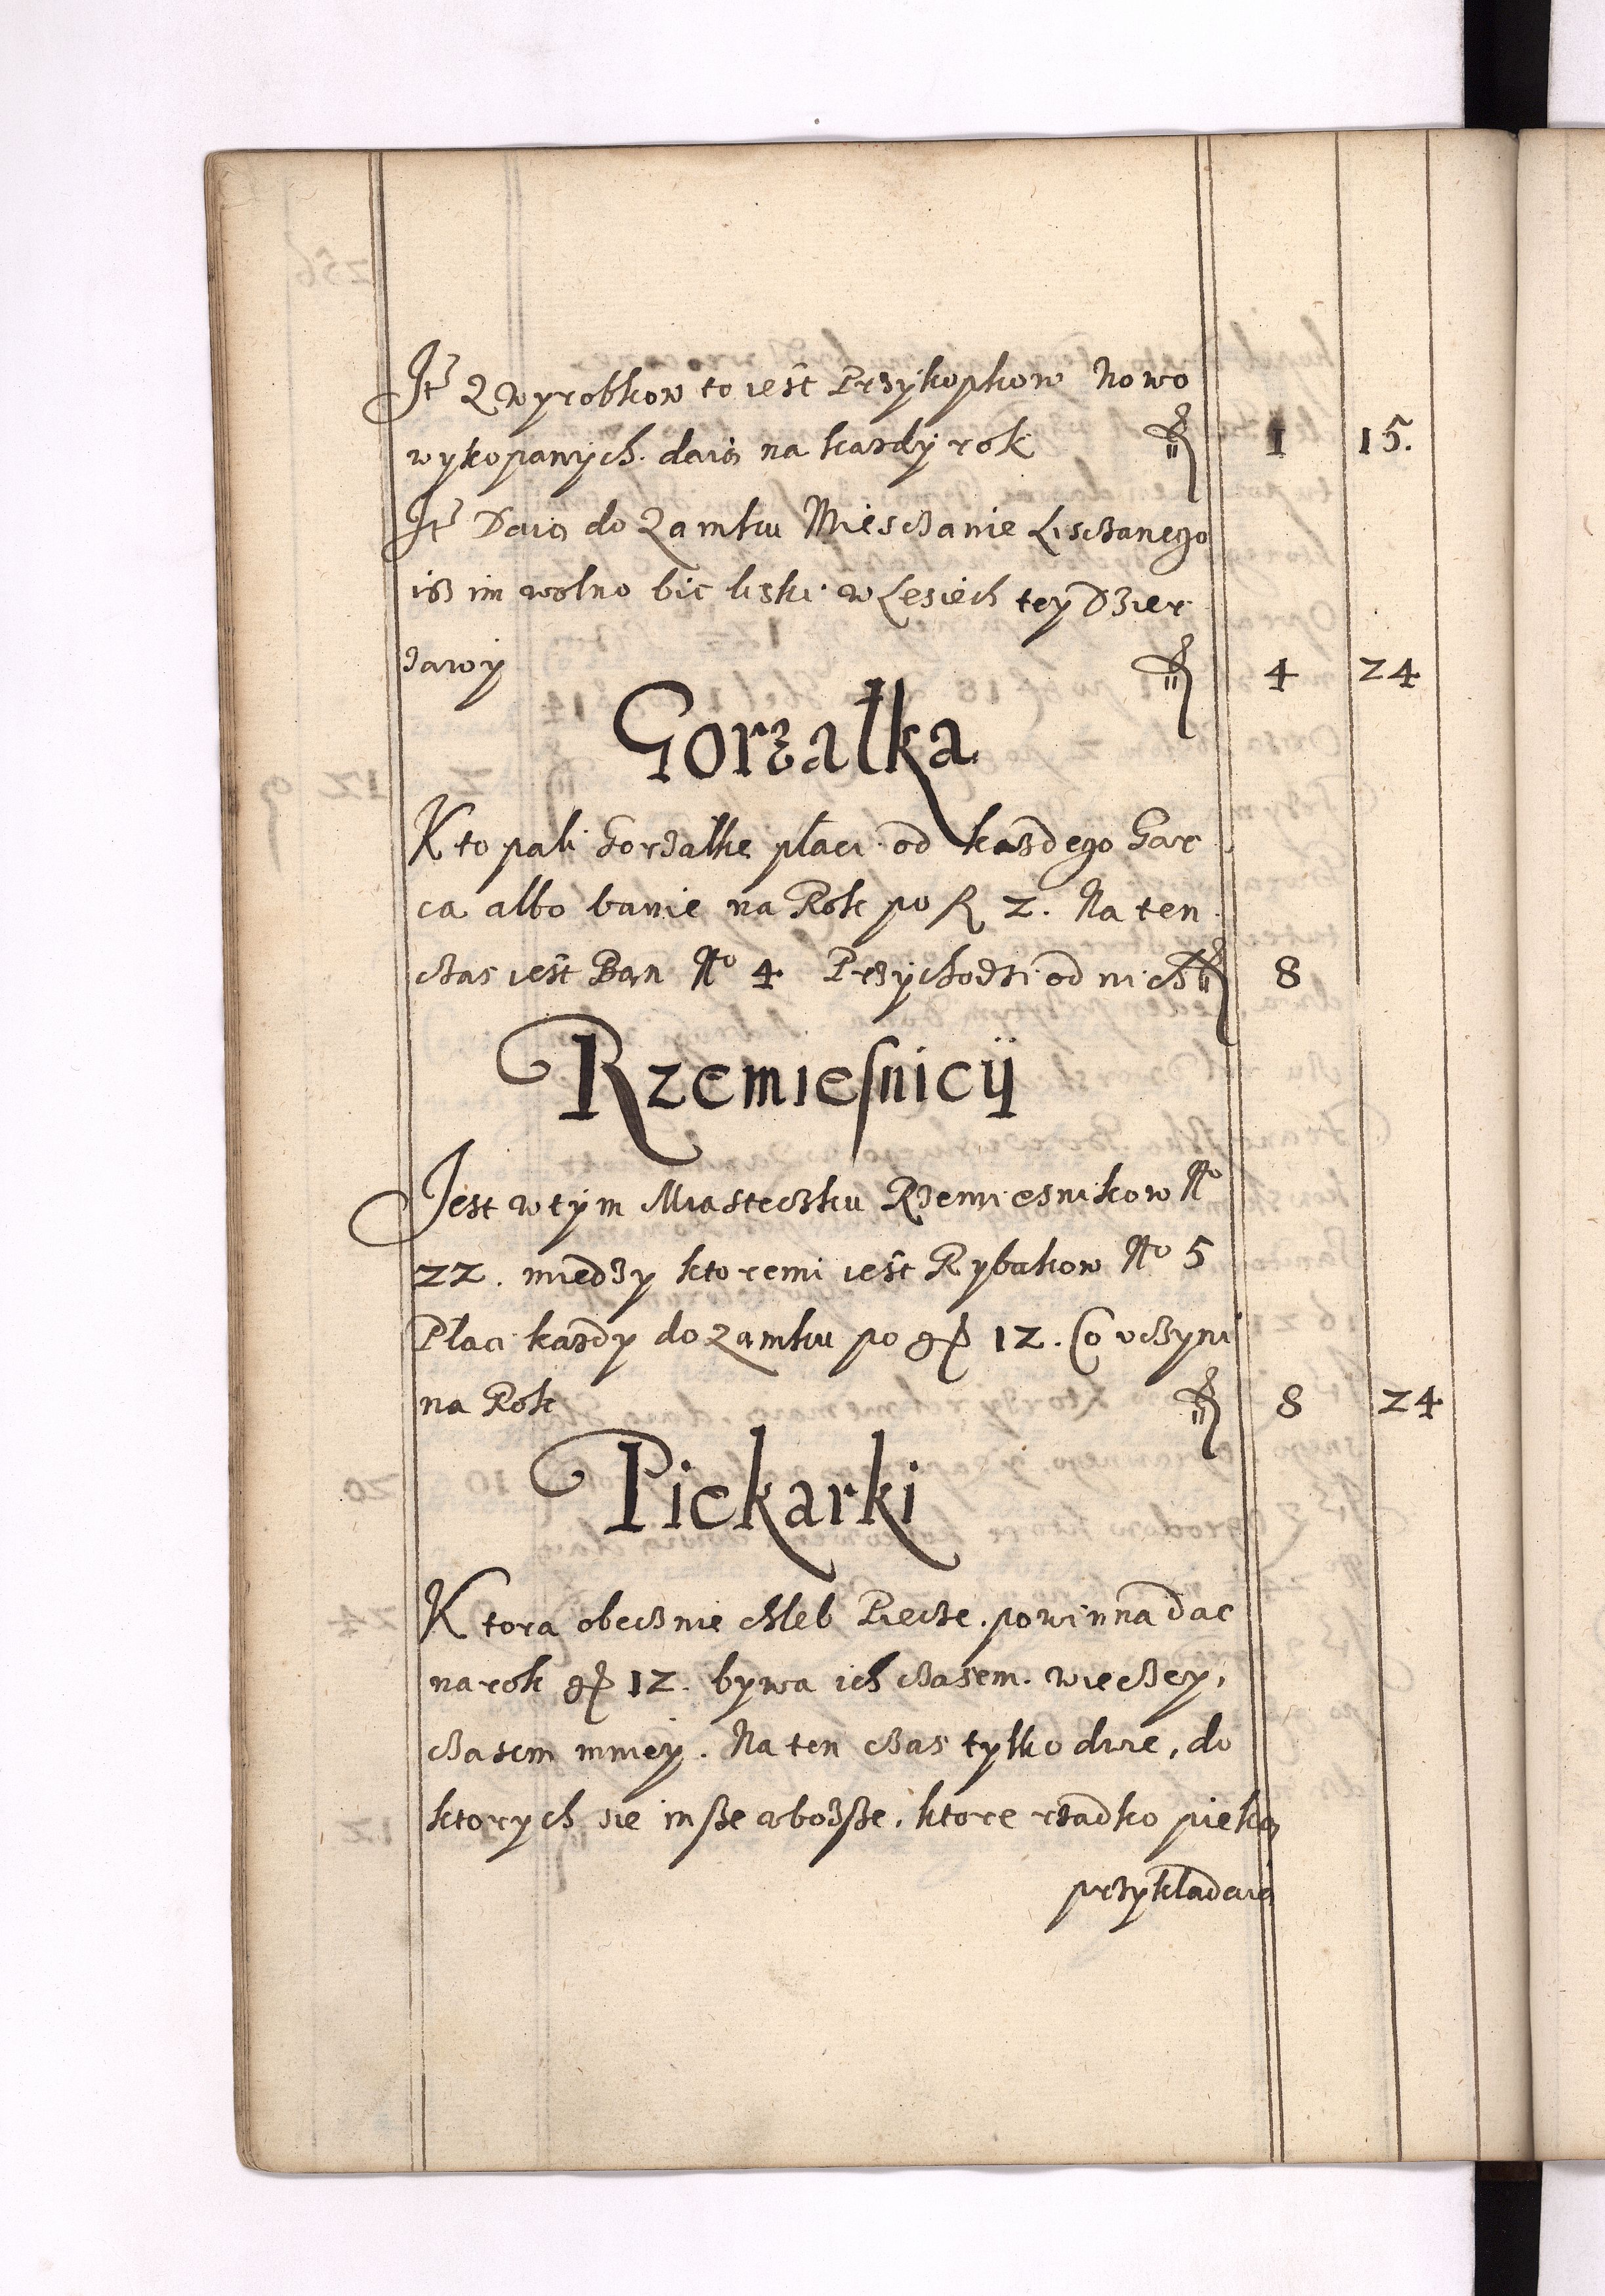 Jt Z wyrobkow to iest Przykopkow Nowo
wykopanych. daią na kazdy rok fl 1 15.
Jt Daią do Zamku Miesczanie Lisczanego
isz im wolno bic liski w Lesiech tey Dzier
zawy fl 4 24
Gorzałka
Kto pali Gorzałke płaci od kazdego Gar
ca albo banie na Rok po fl 2. Na ten
czas iest Ban No 4. Przychodzi od nich fl 8
Rzemiesnicy
Jest w tym Miasteczku Rzemiesnikow No
22. miedzy ktoremi iest Rybakow No 5
Płaci kazdy do Zamku po gr 12. Co vczyni
na Rok fl 8 24
Piekarki
Ktora obecznie chleb Piecze. powinna dac
na rok gr 12. bywa ich czasem. wieczey,
czasem mniey. Na ten czas tylko dwie, do
ktorych sie insze vbozsze, ktore rzadko pieką
przykładaią